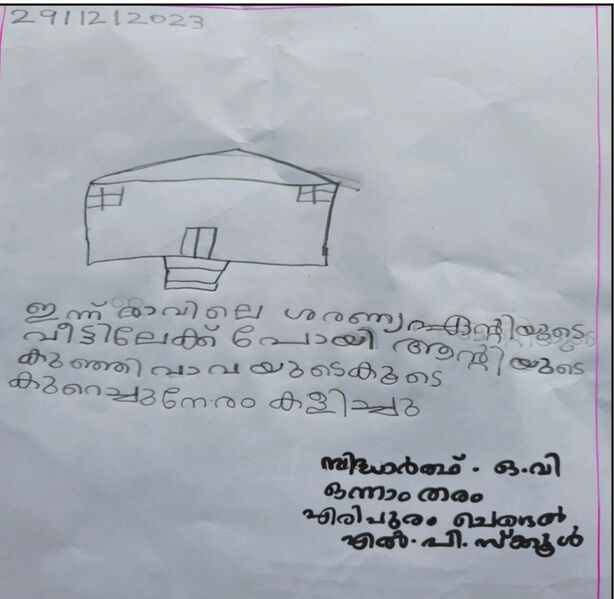 29/12/2023
ഇന്ന് രാവിലെ ശരണ്യ ആന്റിയുടെ
വീട്ടിലേക്ക് പോയി ആന്റിയുടെ
കുഞ്ഞി വാവയുടെകുടെ
കുറെച്ചുനേരം കളിച്ചു
സിദ്ധാർത്ഥ് . ഒ.വി
ഒന്നാം തരം
എരിപുരം ചെങ്ങൽ
എൽ.പി.സ്ക്കൂൾ